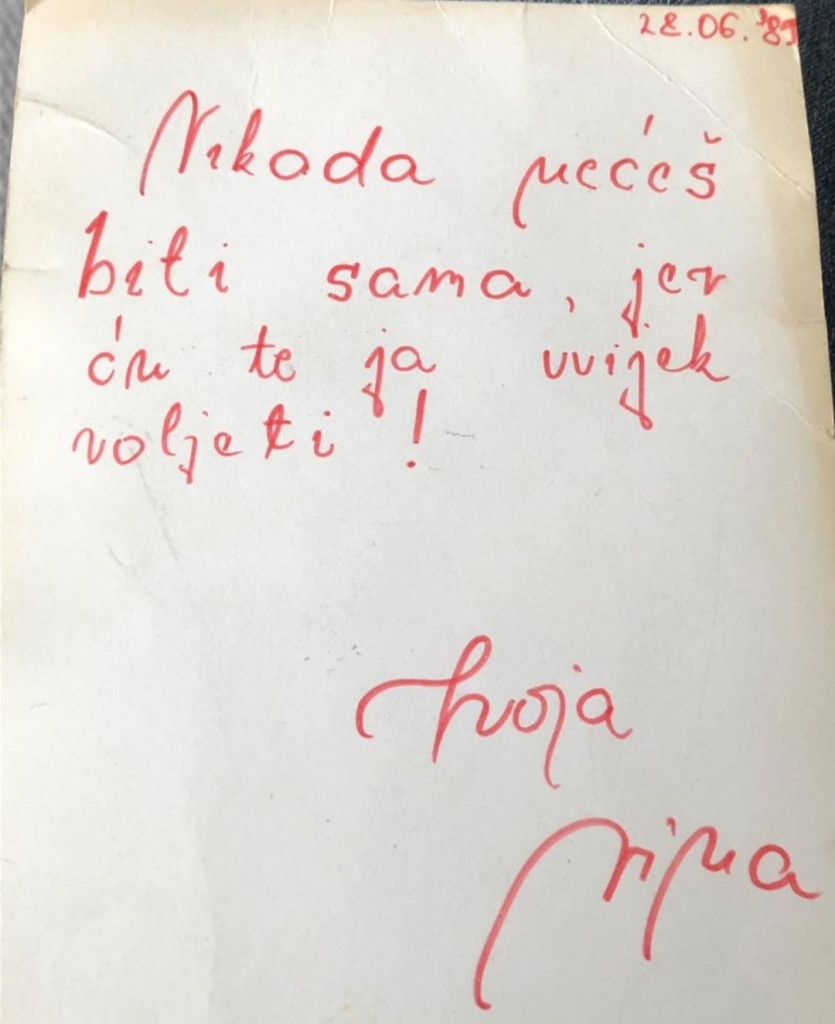 28.06.'89
Nikada nećeš
biti sama, jer
ću te ja uvijek
voljeti!
tvoja